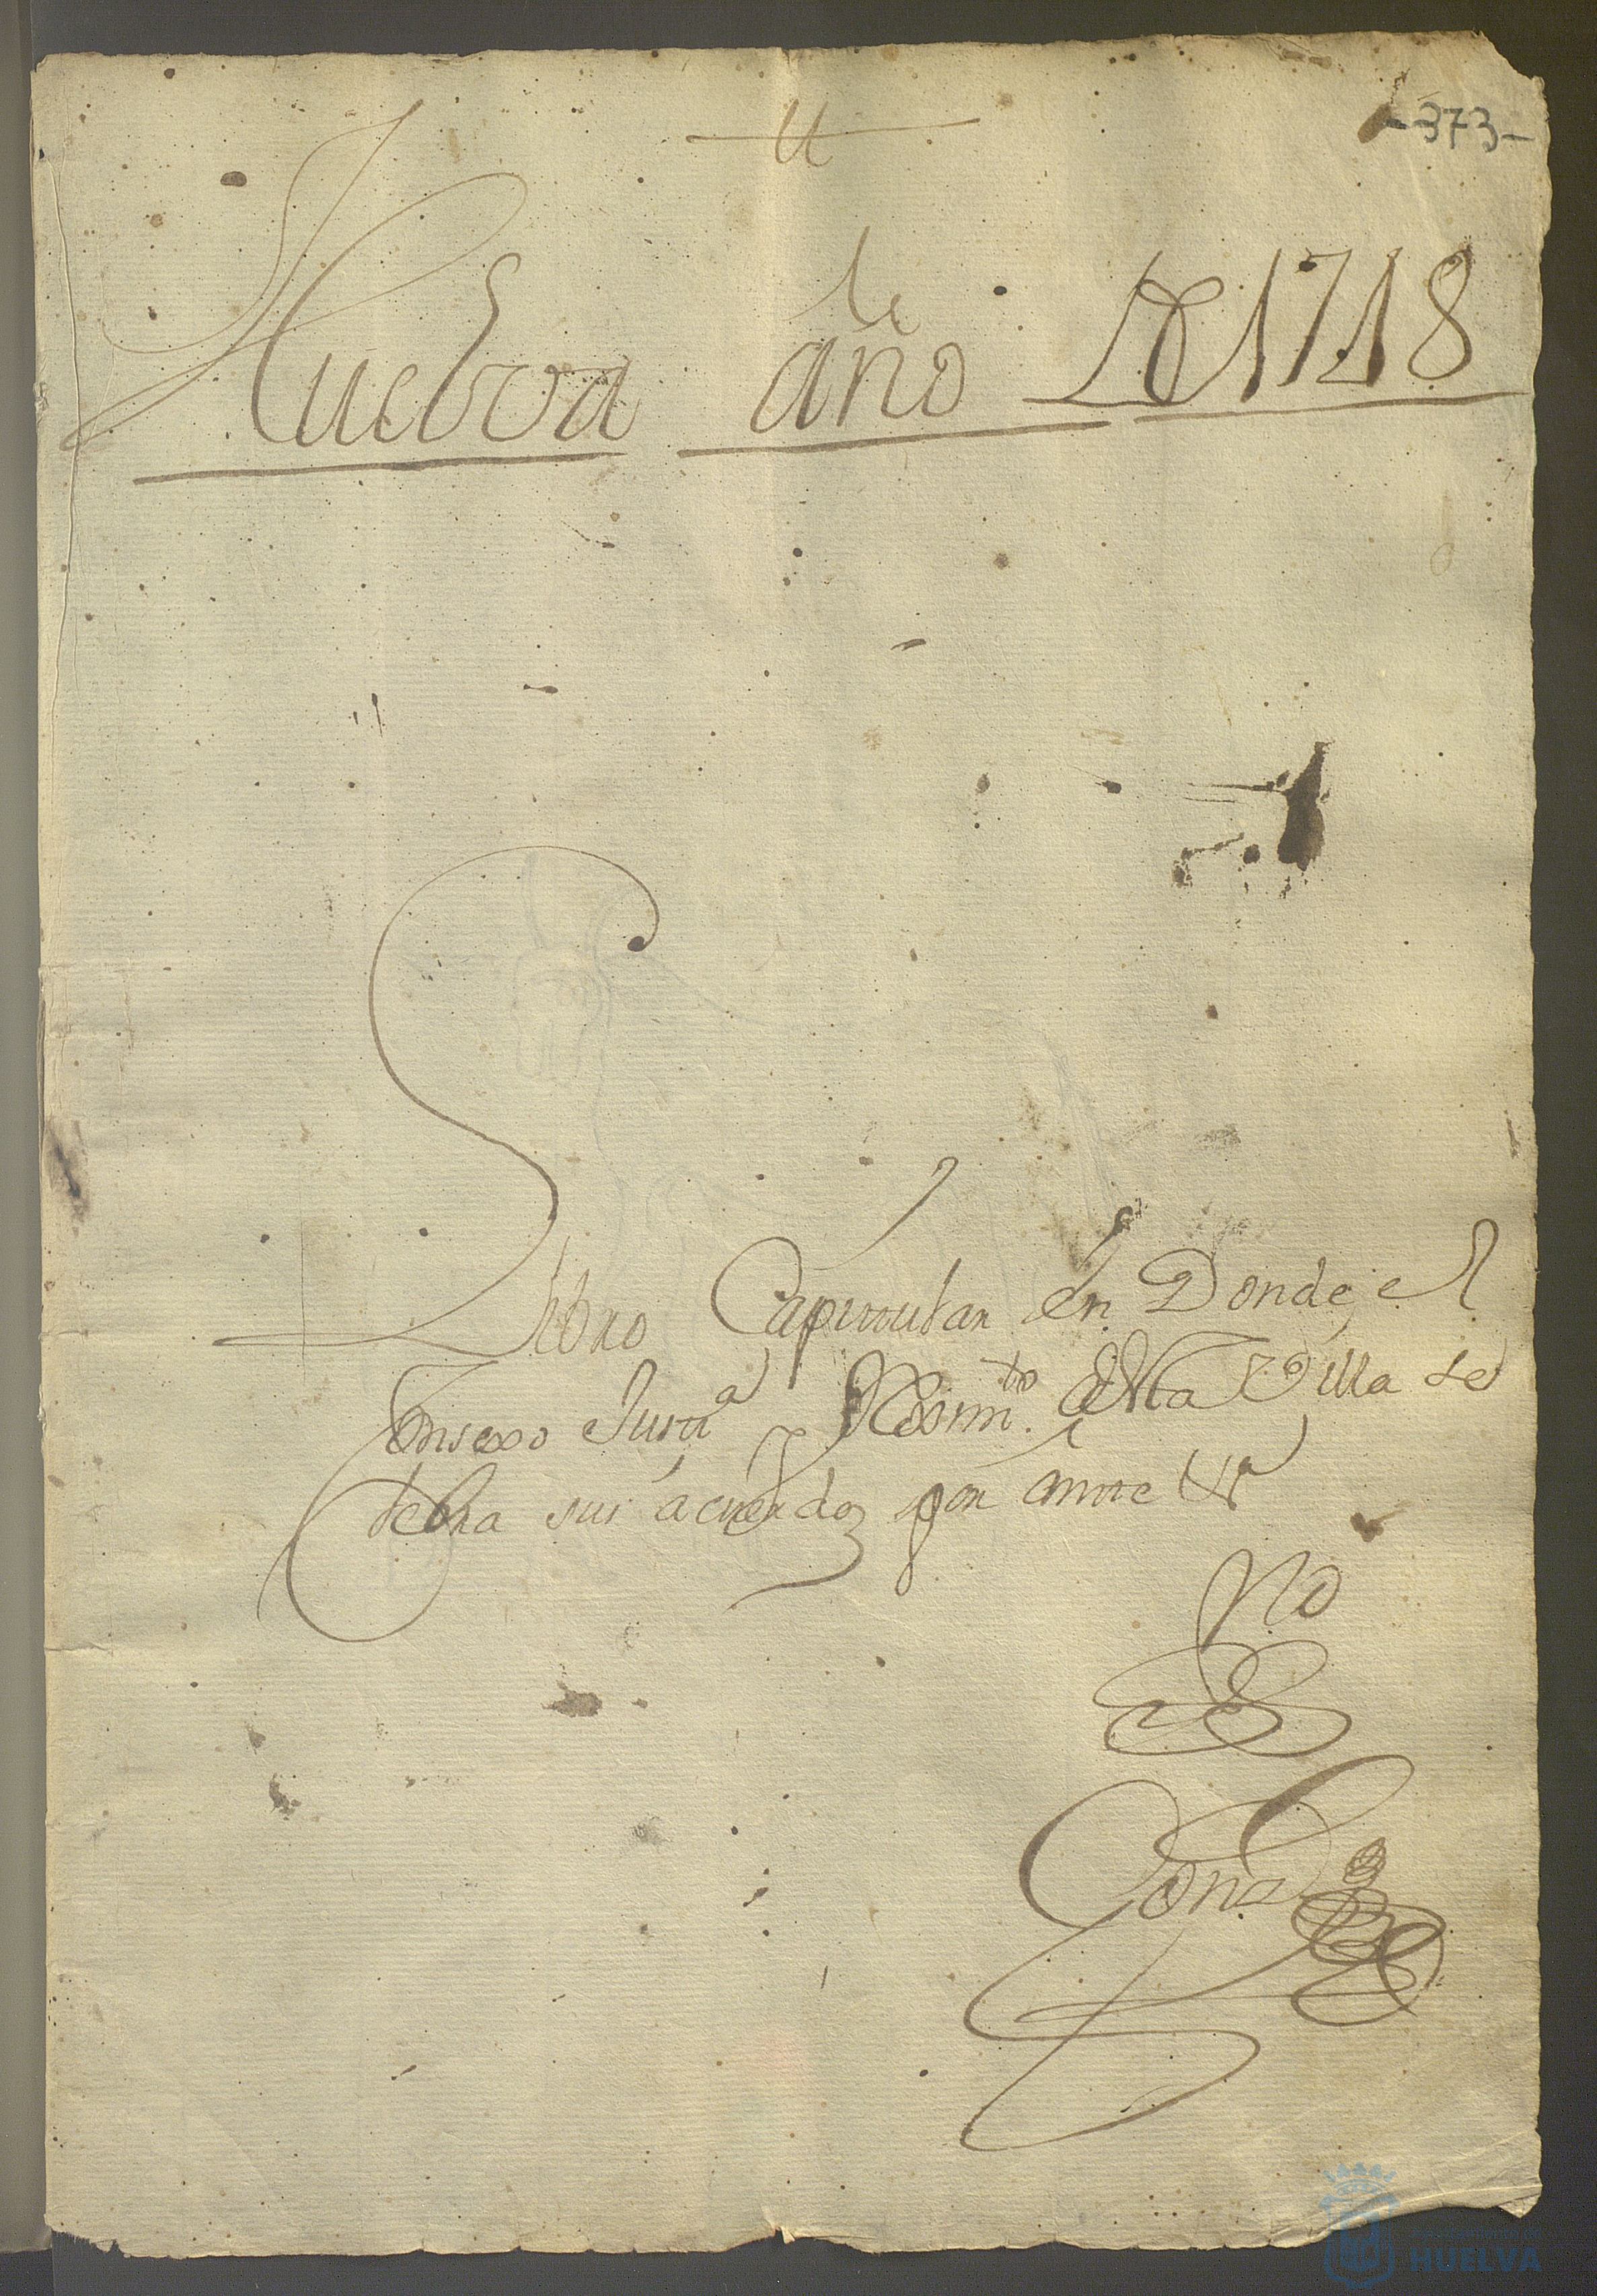 -373-
Huelva año de 1718
Libro Capitular en Donde, el
Consexo Justª y Reximto. desta Villa de
lebra sus acuerdos por ante el
no
HUELVA